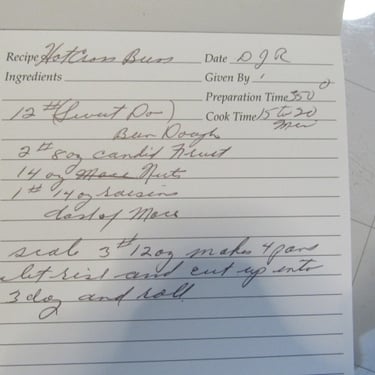 Recipe Hot Cross Buns Date D J R
Ingredients Given By
Preparation Time 350°
12 # (Sweet Do) Cook Time 15 to 20
Min
Bun Dough
2 # 8 oz candid Fruit
14 oz Mace Nuts
1 # 14 oz raisins
dash of Mace
scale 3 # 12 oz makes 4 pans
let rise and cut up into
3 doz and roll